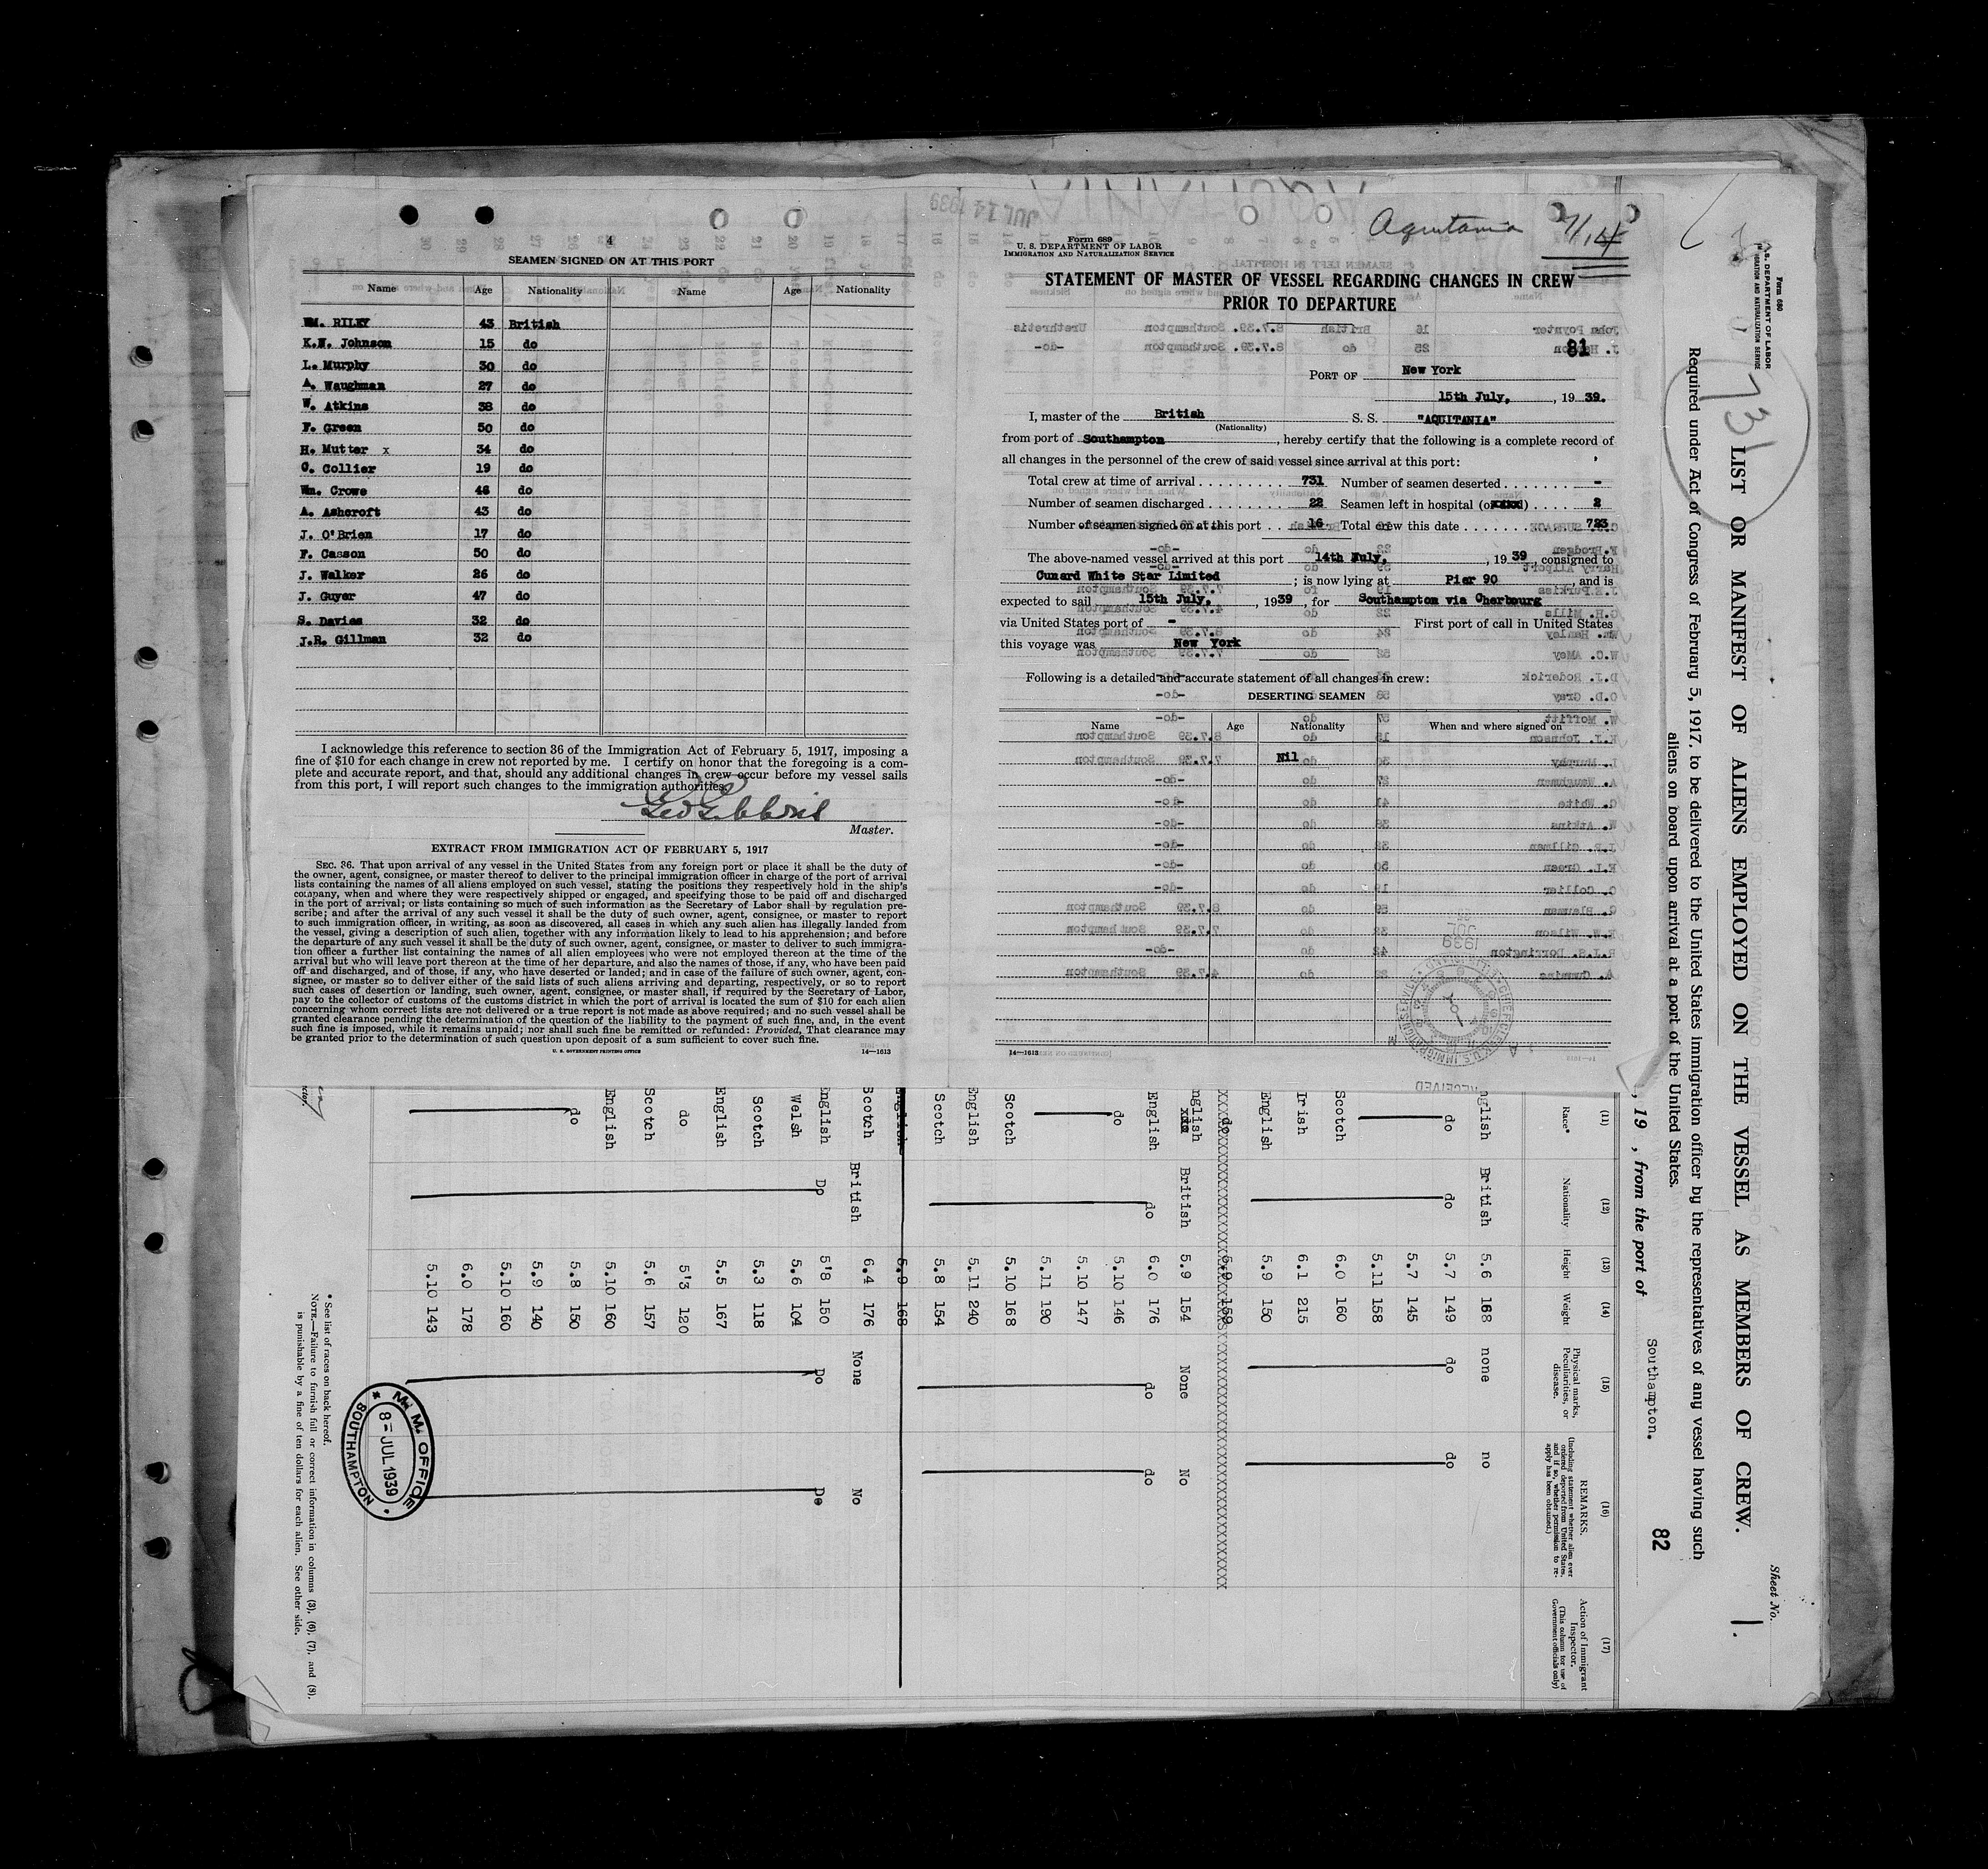 4
SEAMEN SIGNED ON AT THIS PORT
Name Age Nationality Name Age Nationality
WM. RILEY 43 British
K.W. Johnson 15 do
L. Murphy 30 do
A. Waughman 27 do
W. Atkins 38 do
F. Green 50 do
H. Mutter x 34 do
C. Collier 19 do
Wm. Crowe 48 do
A. Ashcroft 43 do
J. O'Brien 17 do
F. Casson 50 do
J. Walker 26 do
J. Guyer 47 do
S. Davies 32 do
J.R. Gillman 32 do
I acknowledge this reference to section 36 of the Immigration Act of February 5, 1917, imposing a
fine of $10 for each change in crew not reported by me. I certify on honor that the foregoing is a com-
plete and accurate report, and that, should any additional changes in crew occur before my vessel sails
from this port, I will report such changes to the immigration authorities.
Master.
EXTRACT FROM IMMIGRATION ACT OF FEBRUARY 5, 1917
SEC. 36. That upon arrival of any vessel in the United States from any foreign port or place it shall be the duty of
the owner, agent, consignee, or master thereof to deliver to the principal immigration officer in charge of the port of arrival
lists containing the names of all aliens employed on such vessel, stating the positions they respectively hold in the ship's
company, when and where they were respectively shipped or engaged, and specifying those to be paid off and discharged
in the port of arrival; or lists containing so much of such information as the Secretary of Labor shall by regulation pre-
scribe; and after the arrival of any such vessel it shall be the duty of such owner, agent, consignee, or master to report
to such immigration officer, in writing, as soon as discovered, all cases in which any such alien has illegally landed from
the vessel, giving a description of such alien, together with any information likely to lead to his apprehension; and before
the departure of any such vessel it shall be the duty of such owner, agent, consignee, or master to deliver to such immigra-
tion officer a further list containing the names of all alien employees who were not employed thereon at the time of the
arrival but who will leave port thereon at the time of her departure, and also the names of those, if any, who have been paid
off and discharged, and of those, if any, who have deserted or landed; and in case of the failure of such owner, agent, con-
signee, or master so to deliver either of the said lists of such aliens arriving and departing, respectively, or so to report
such cases of desertion or landing, such owner, agent, consignee, or master shall, if required by the Secretary of Labor,
pay to the collector of customs of the customs district in which the port of arrival is located the sum of $10 for each alien
concerning whom correct lists are not delivered or a true report is not made as above required; and no such vessel shall be
granted clearance pending the determination of the question of the liability to the payment of such fine, and, in the event
such fine is imposed, while it remains unpaid; nor shall such fine be remitted or refunded: Provided, That clearance may
be granted prior to the determination of such question upon deposit of a sum sufficient to cover such fine.
U. S. GOVERNMENT PRINTING OFFICE 14—1613
Aquitania 7/14
Form 689
U. S. DEPARTMENT OF LABOR
IMMIGRATION AND NATURALIZATION SERVICE
STATEMENT OF MASTER OF VESSEL REGARDING CHANGES IN CREW
PRIOR TO DEPARTURE
81
PORT OF New York
15th July, , 19 39.
I, master of the British S. S. "AQUITANIA"
(Nationality)
from port of Southampton , hereby certify that the following is a complete record of
all changes in the personnel of the crew of said vessel since arrival at this port:
Total crew at time of arrival 731 Number of seamen deserted -
Number of seamen discharged 22 Seamen left in hospital (or xxxx) 2
Number of seamen signed on at this port 16. Total crew this date 723
The above-named vessel arrived at this port 14th July, , 19 39 , consigned to
Cunard White Star Limited ; is now lying at Pier 90 , and is
expected to sail 15th July, , 1939 , for Southampton via Cherbourg
via United States port of - First port of call in United States
this voyage was New York
Following is a detailed and accurate statement of all changes in crew:
DESERTING SEAMEN
Name Age Nationality When and where signed on
Nil
14—1613
Form 680
U.S. DEPARTMENT OF LABOR
IMMIGRATION AND NATURALIZATION SERVICE
731
Sheet No. 1.
LIST OR MANIFEST OF ALIENS EMPLOYED ON THE VESSEL AS MEMBERS OF CREW.
Required under Act of Congress of February 5, 1917, to be delivered to the United States immigration officer by the representatives of any vessel having such
aliens on board upon arrival at a port of the United States.
, 19 , from the port of Southampton.
82
(11) (12) (13) (14) (15) (16) (17)
Race* Nationality Height Weight Physical marks, Peculiarities, or disease. REMARKS. (Including statement whether alien ever ordered deported from United States, and if so, whether permission to re-apply has been obtained.) Action of Immigrant Inspector. (This column for use of Government officials only)
nglish British 5.6 168 none no
do do 5.7 149 do do
5.7 145
5.11 158
Scotch 6.0 160
Irish 6.1 215
English 5.9 150
do 5.9 159
nglish British 5.9 154 None No
English do 6.0 176 do do
do 5.10 146
5.10 147
5.11 190
Scotch 5.10 168
English 5.11 240
Scotch 5.8 154
English 5.9 168
Scotch British 6.4 176 None No
English Do 5'8 150 Do Do
Welsh 5.6 104
Scotch 5.3 118
English 5.5 167
do 5'3 120
Scotch 5.6 157
English 5.10 160
do 5.8 150
5.9 140
5.10 160
6.0 178
5.10 143
* See list of races on back hereof.
NOTE.—Failure to furnish full or correct information in columns (3), (6), (7), and (8),
is punishable by a fine of ten dollars for each alien. See other side.
M. M. OFFICE
8 - JUL 1939
SOUTHAMPTON